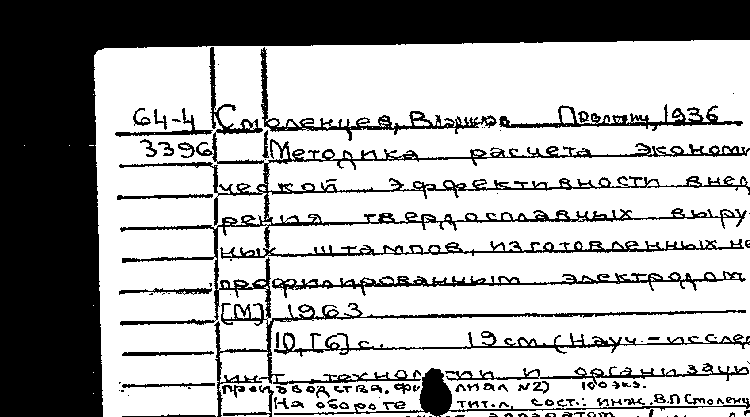 64-4 Смоленцев, В 1936
3396 Методика расчета экономи
ческой эффективности внед
рения твердосплавных выру
ных штампов, изготовленных не
профилированным электродом
[М] 1963
10, [6] с. 19 см. (Науч.-исслед
ин-т технологии и организаци
производства. Филиал №2) 100 экз.
На обороте тит.л. сост.: инж. В.П Смоленц